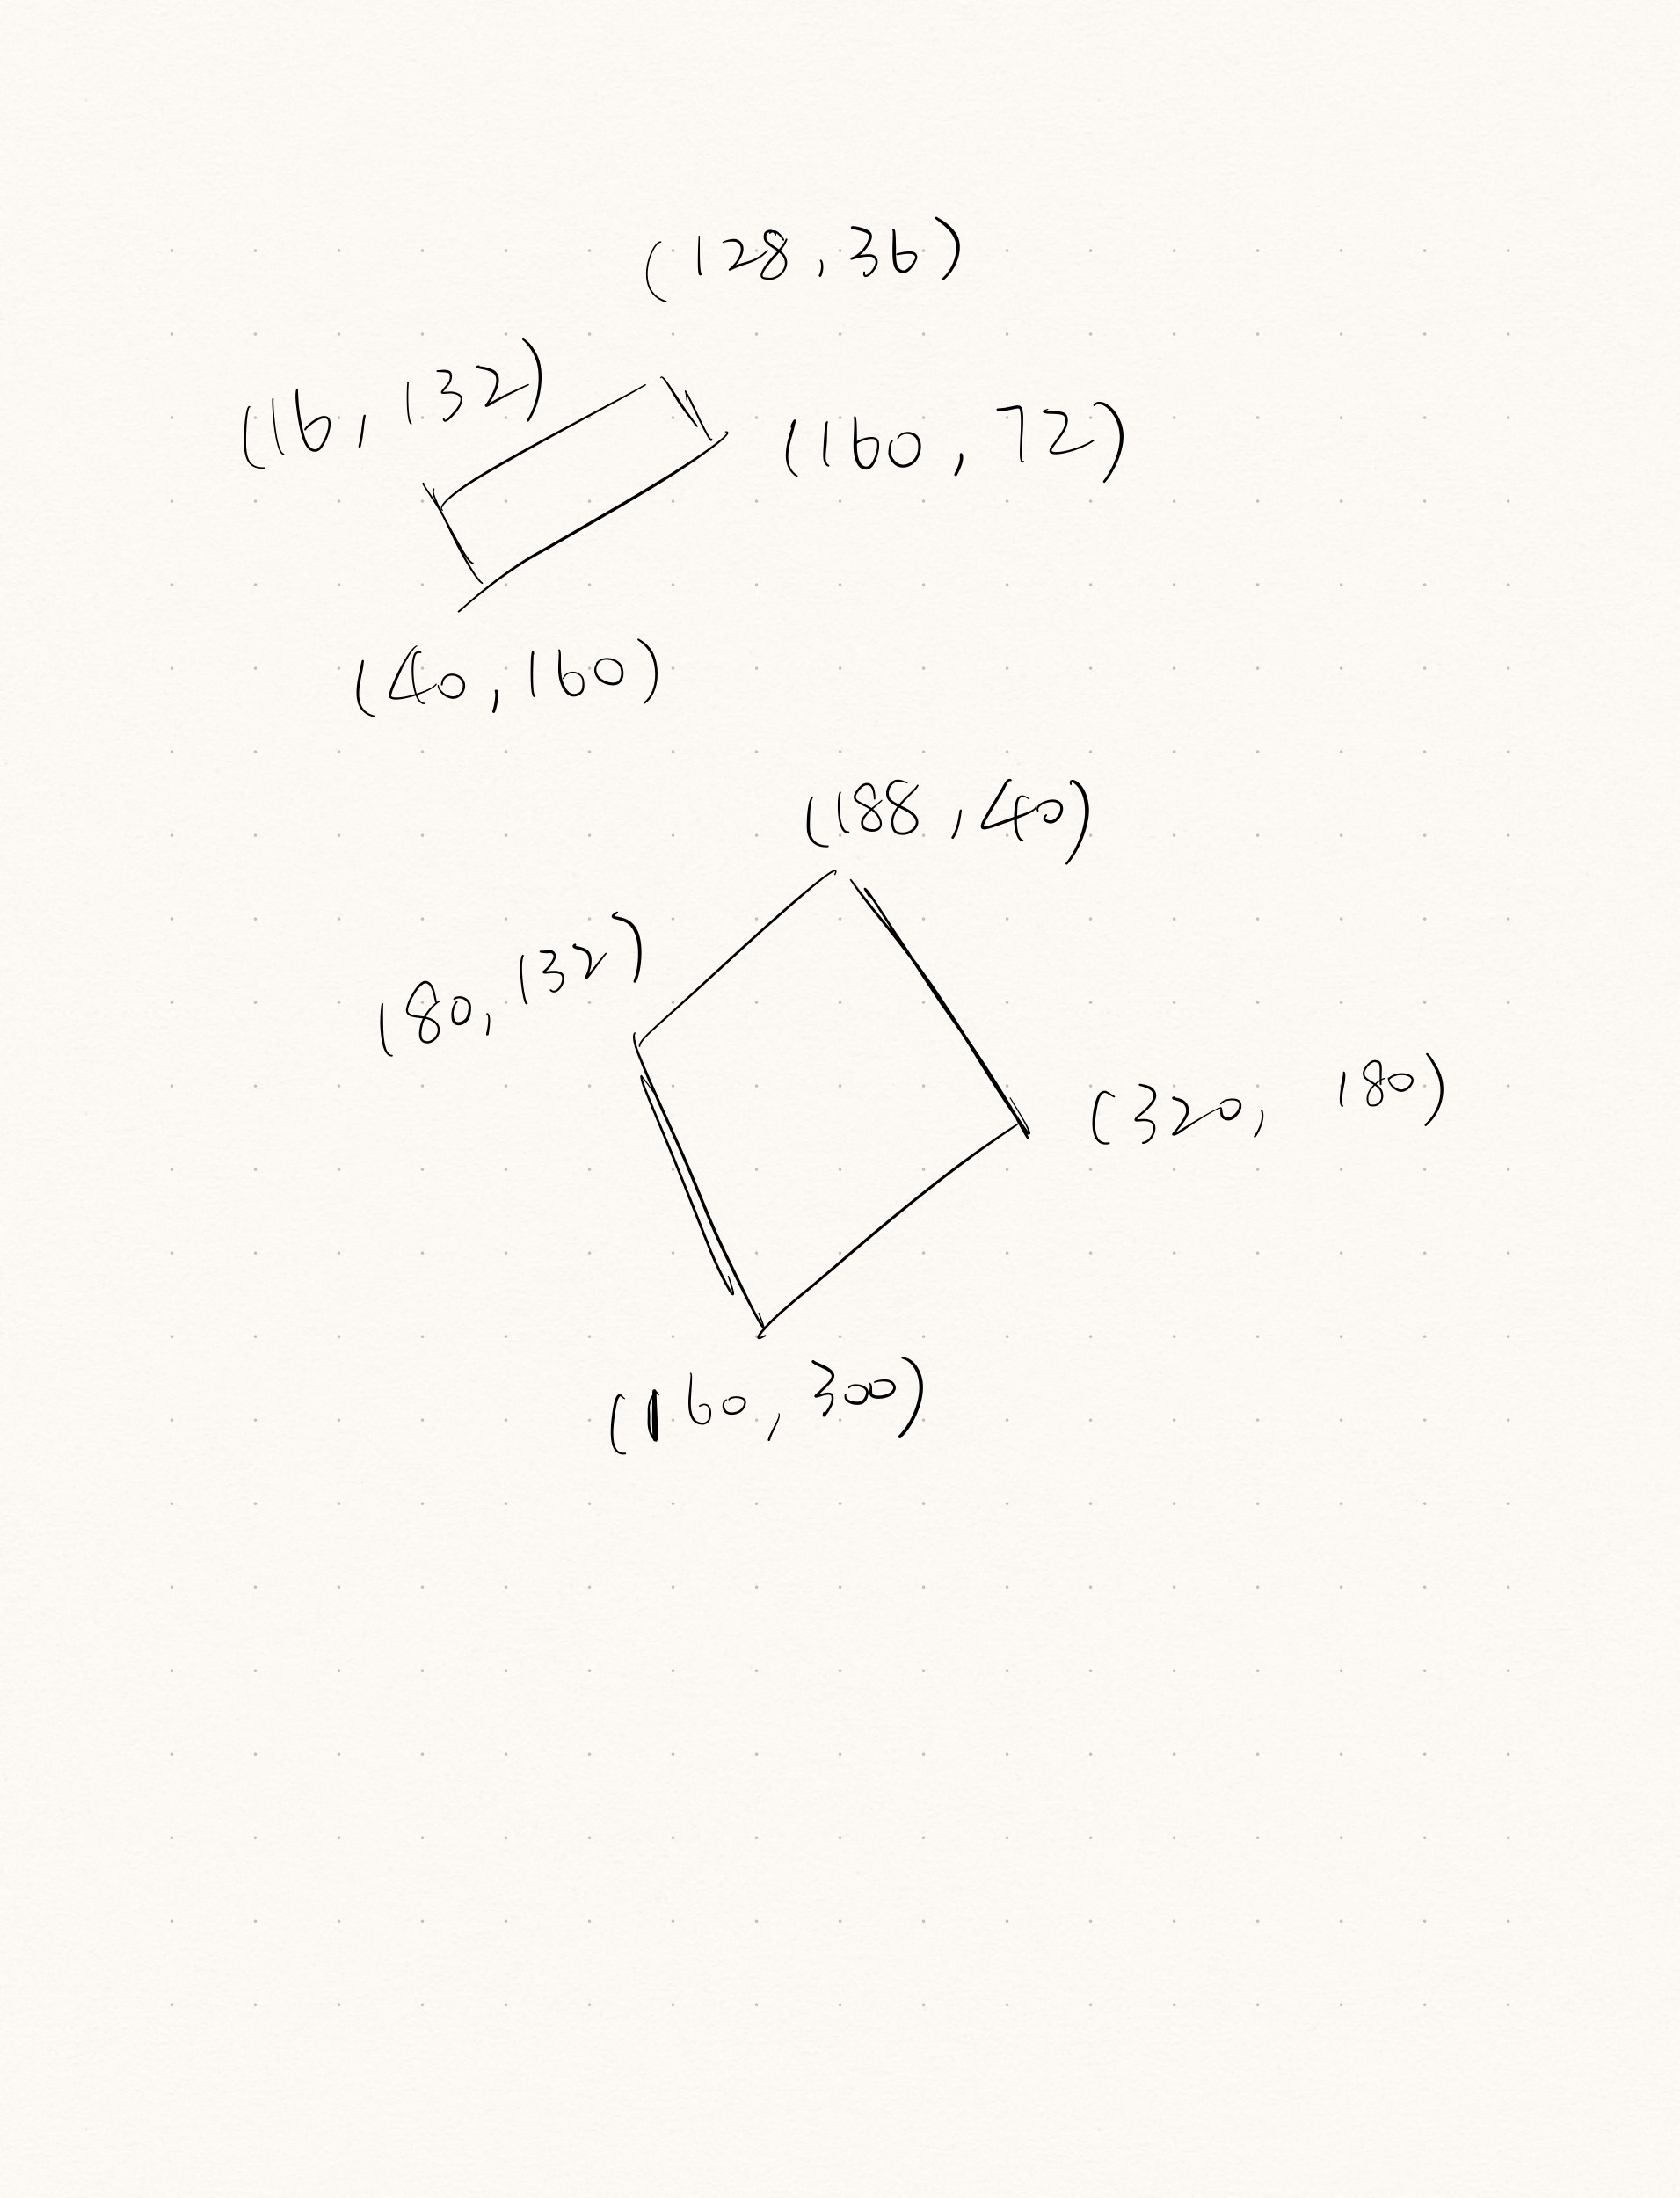 (128,36)
(16,132)
(160,72)
(40,160)
(188,40)
(80,132)
(320, 180)
(160,300)